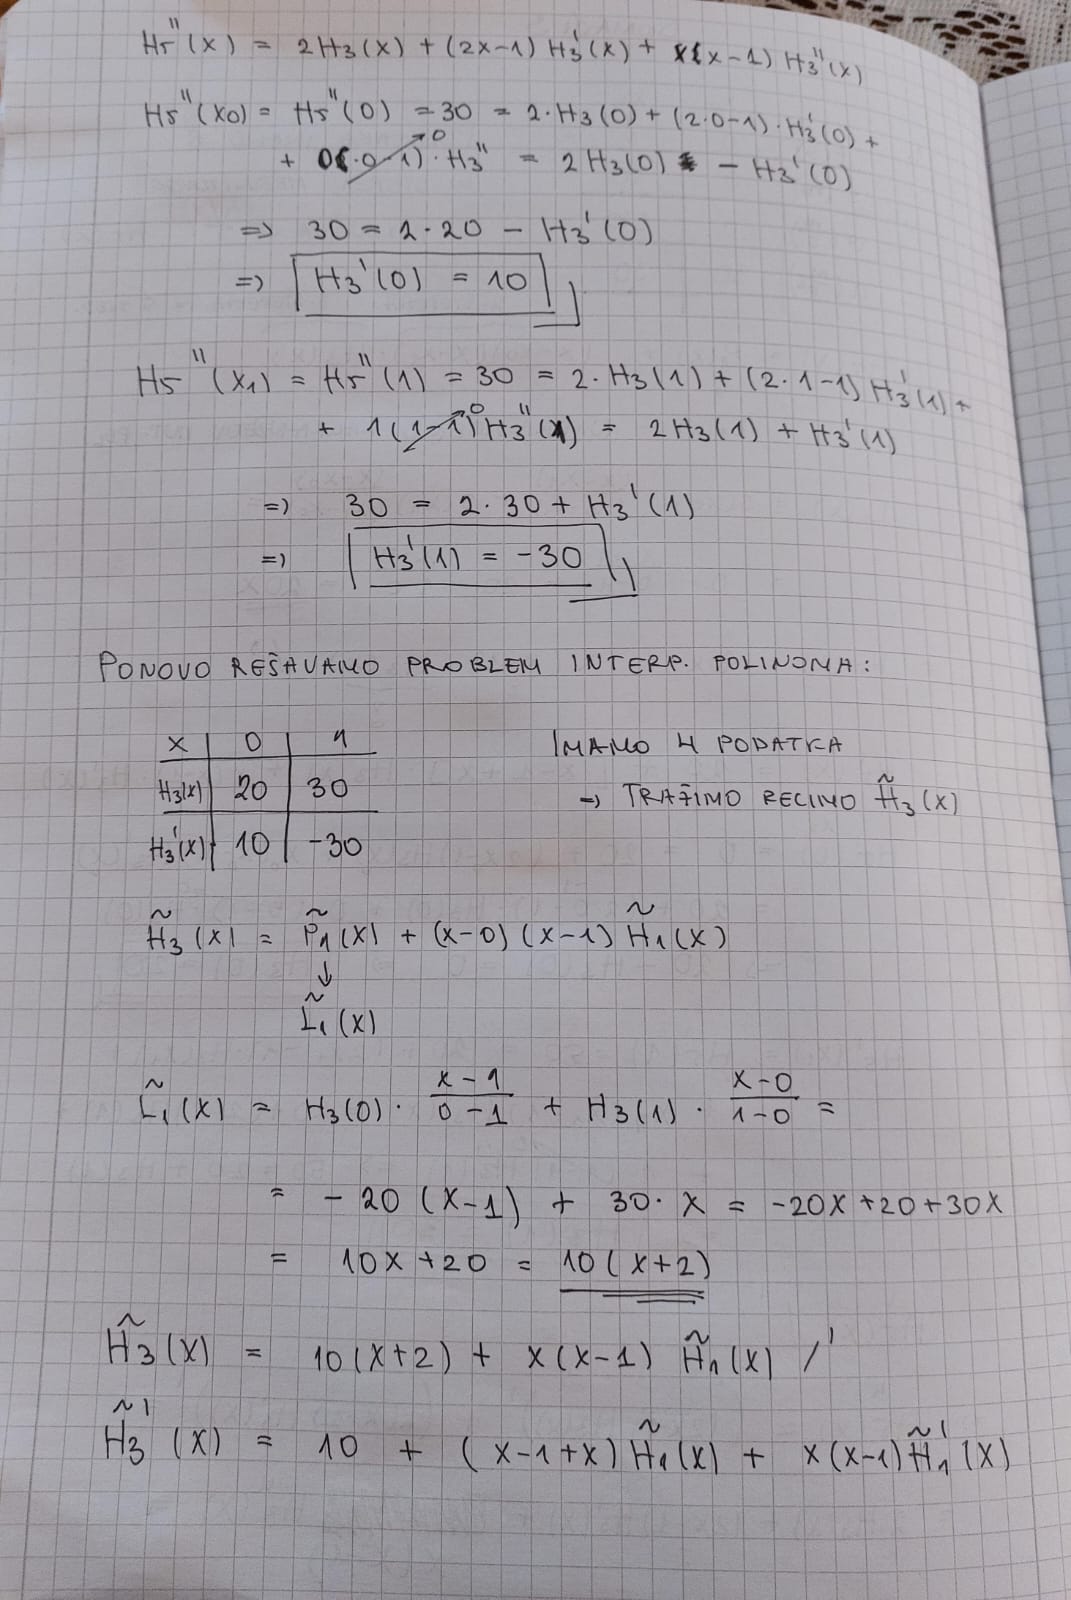 H5''(x) = 2H3(x) + (2x-1) H3'(x) + x(x-1) H3''(x)
H5''(x0) = H5''(0) = 30 = 2·H3(0) + (2·0-1)·H3'(0) +
+ 0(·0-1)→0 · H3'' = 2H3(0) - H3'(0)
=> 30 = 2·20 - H3'(0)
=> H3'(0) = 10
H5''(x1) = H5''(1) = 30 = 2·H3(1) + (2·1-1) H3'(1) +
+ 1(1-1)→0 H3''(1) = 2H3(1) + H3'(1)
=> 30 = 2·30 + H3'(1)
=> H3'(1) = -30
PONOVO REŠAVAMO PROBLEM INTERP. POLINOMA:
x | 0 | 1
H3(x) | 20 | 30
H3'(x) | 10 | -30
IMAMO 4 PODATKA
→ TRAŽIMO RECIMO H̃3(x)
H̃3(x) = P̃1(x) + (x-0)(x-1) H̃1(x)
↓
L̃1(x)
L̃1(x) = H3(0) · (x-1)/(0-1) + H3(1) · (x-0)/(1-0) =
= -20(x-1) + 30·x = -20x+20+30x
= 10x+20 = 10(x+2)
H̃3(x) = 10(x+2) + x(x-1) H̃1(x) /'
H̃3'(x) = 10 + (x-1+x) H̃1(x) + x(x-1) H̃1'(x)